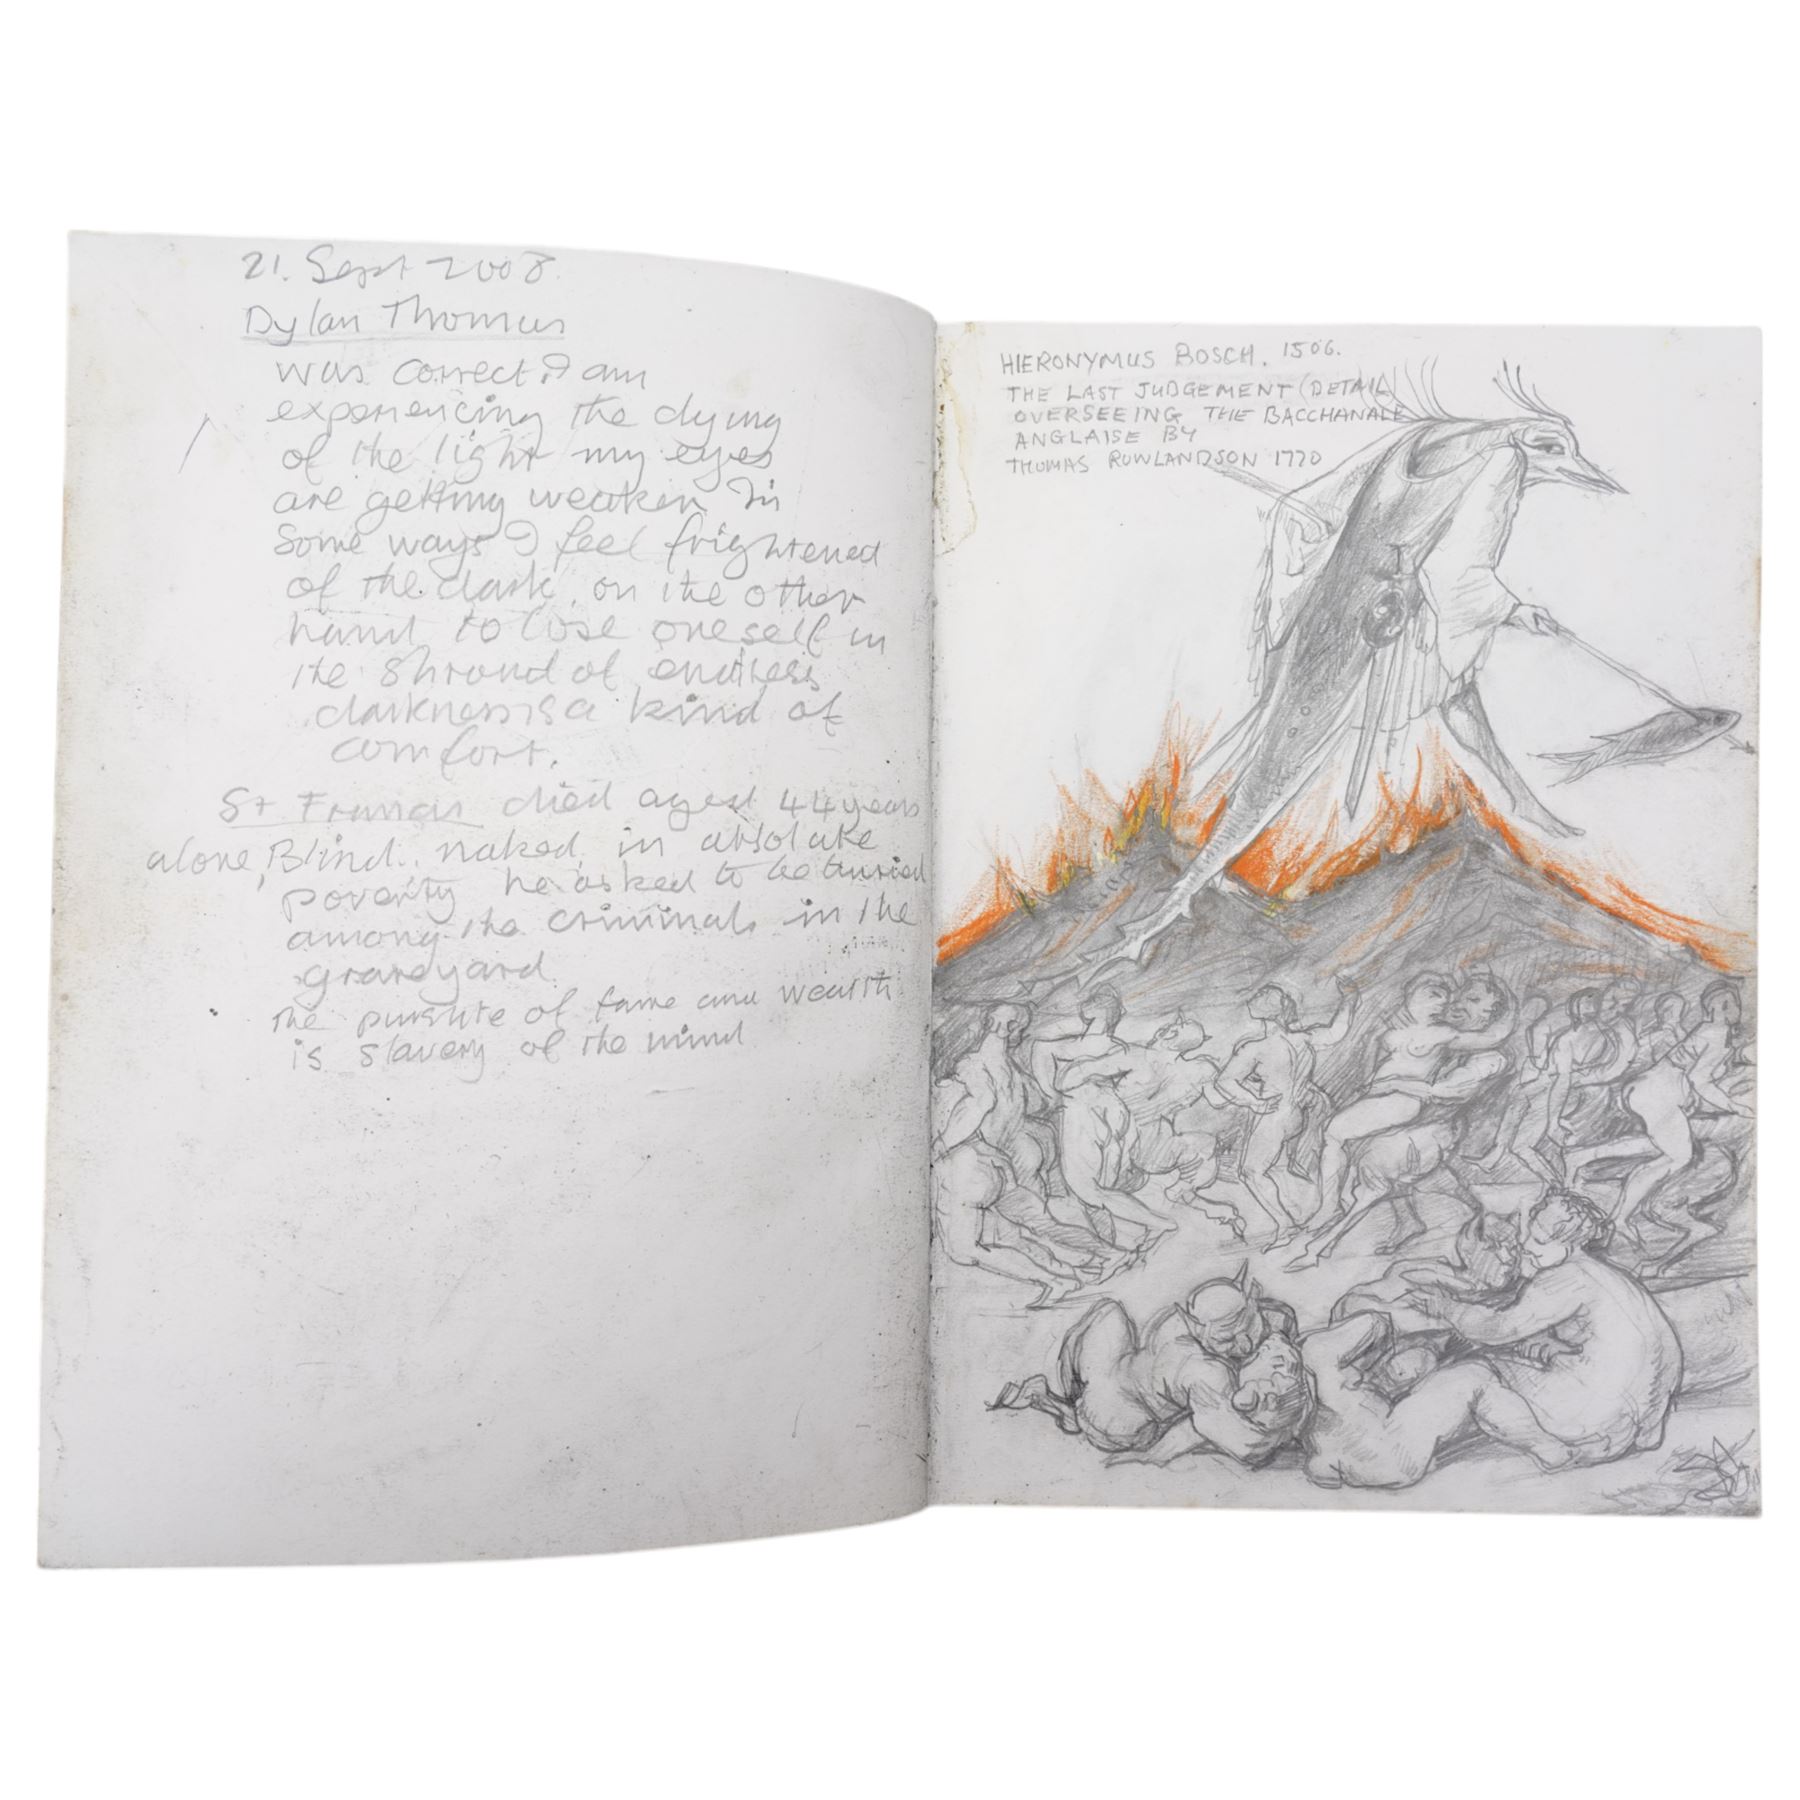 21. Sept 2008
Dylan Thomas
was correct. I am
experiencing the dying
of the light my eyes
are getting weaker. In
Some ways I feel frightened
of the dark, on the other
hand, to lose oneself in
the shroud of endless
darkness is a kind of
comfort.
St Francis died aged 44 years
alone, Blind. naked, in absolute
poverty he asked to be buried
among the criminals in the
graveyard
The pursuite of fame and wealth
is slavery of the mind
HIERONYMUS BOSCH. 1506.
THE LAST JUDGEMENT (DETAIL)
OVERSEEING THE BACCHANALE
ANGLAISE BY
THOMAS ROWLANDSON 1770